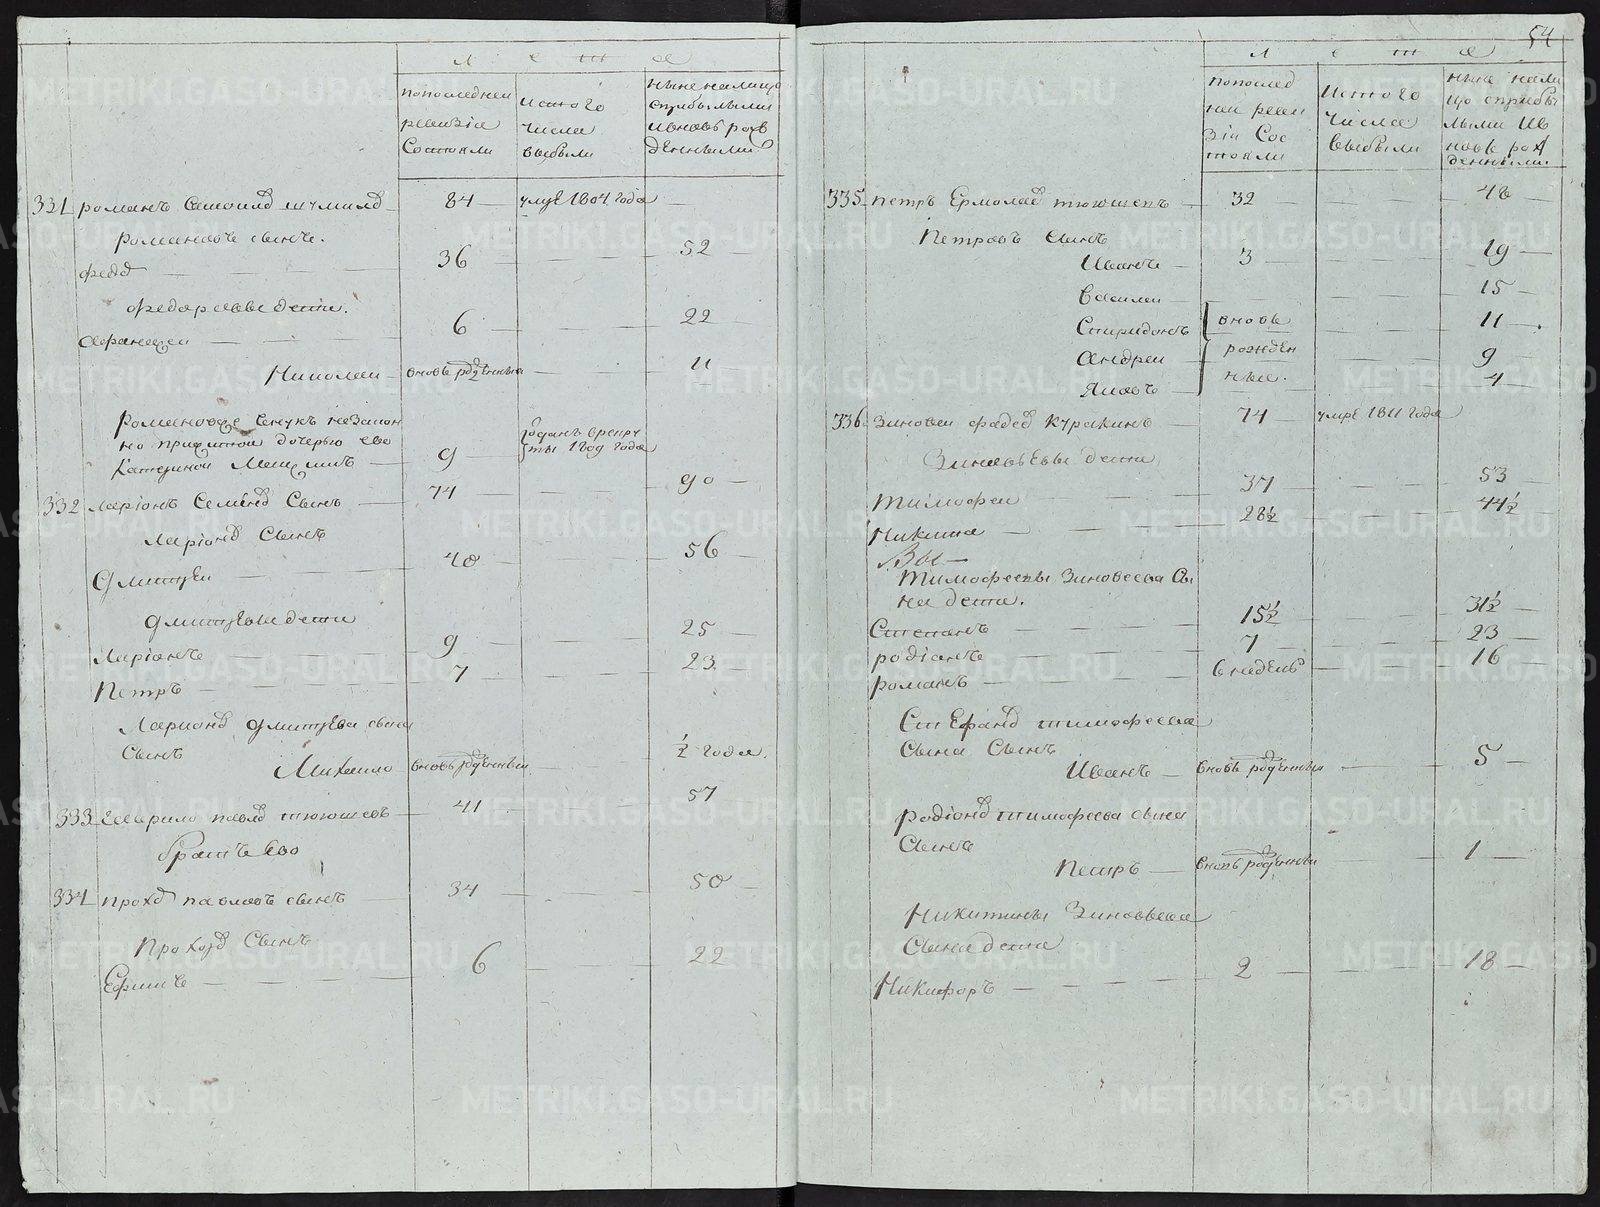 54
Л е т а
попоследней
ревизіи
состояли
изтого
числа
выбыли
ныне налицо
сприбылыми
ивновь рож
денными
331 романъ Самоилов шумилов 84 умре 1804 года
романовъ сынъ.
федор 36 52
федоровы дети.
Афанасей 6 22
Николай вновь рожденный 11
Романовъ внукъ незакон
но прижитой дочерью ево
Катериной 9 отданъ врекру
ты года
332 Ларіонъ Семенов Сынъ 74 90
Ларіонов Сынъ
Дмитрей 40 56
Дмитревы дети
Ларіонъ 9 25
Петръ 7 23
Ларионов Дмитрева сына
Сынъ
Михаило вновь рожденный ½ года.
333 Гаврило павлов тюкшевъ 41 57
братъ Ево
334 прохор павловъ сынъ 34 50
Прохоров Сынъ
Ефимъ 6 22
Л е т а
попослед
ней реви
зіи Сос
тояли
Изтого
числа
выбыли
ныне нали
цо сприбы
лыми ив
новь рож
денными
335 петръ Ермолаев 32 48
Петровъ Сынъ
Иванъ 3 19
Василей 15
Спиридонъ вновь 11
Андрей рожден 9
Яковъ ные. 4
336 Зиновей фадеев Куракинъ 74 умре 1811 года
Зиновьевы дети
Тимофей 37 53
Никита 28½ 44½
Тимофеевы Зиновеева Сы
на дети.
Степанъ 15½ 31½
родіонъ 7 23
романъ 6 недель 16
Стефанов тимофеева
Сына Сынъ
Иванъ вновь рожденный 5
родіонов тимофеева сына
Сынъ
Петръ вновь рожденный 1
Никитины Зиновьева
Сына дети
Никифоръ 2 18
METRIKI.GASO-URAL.RU